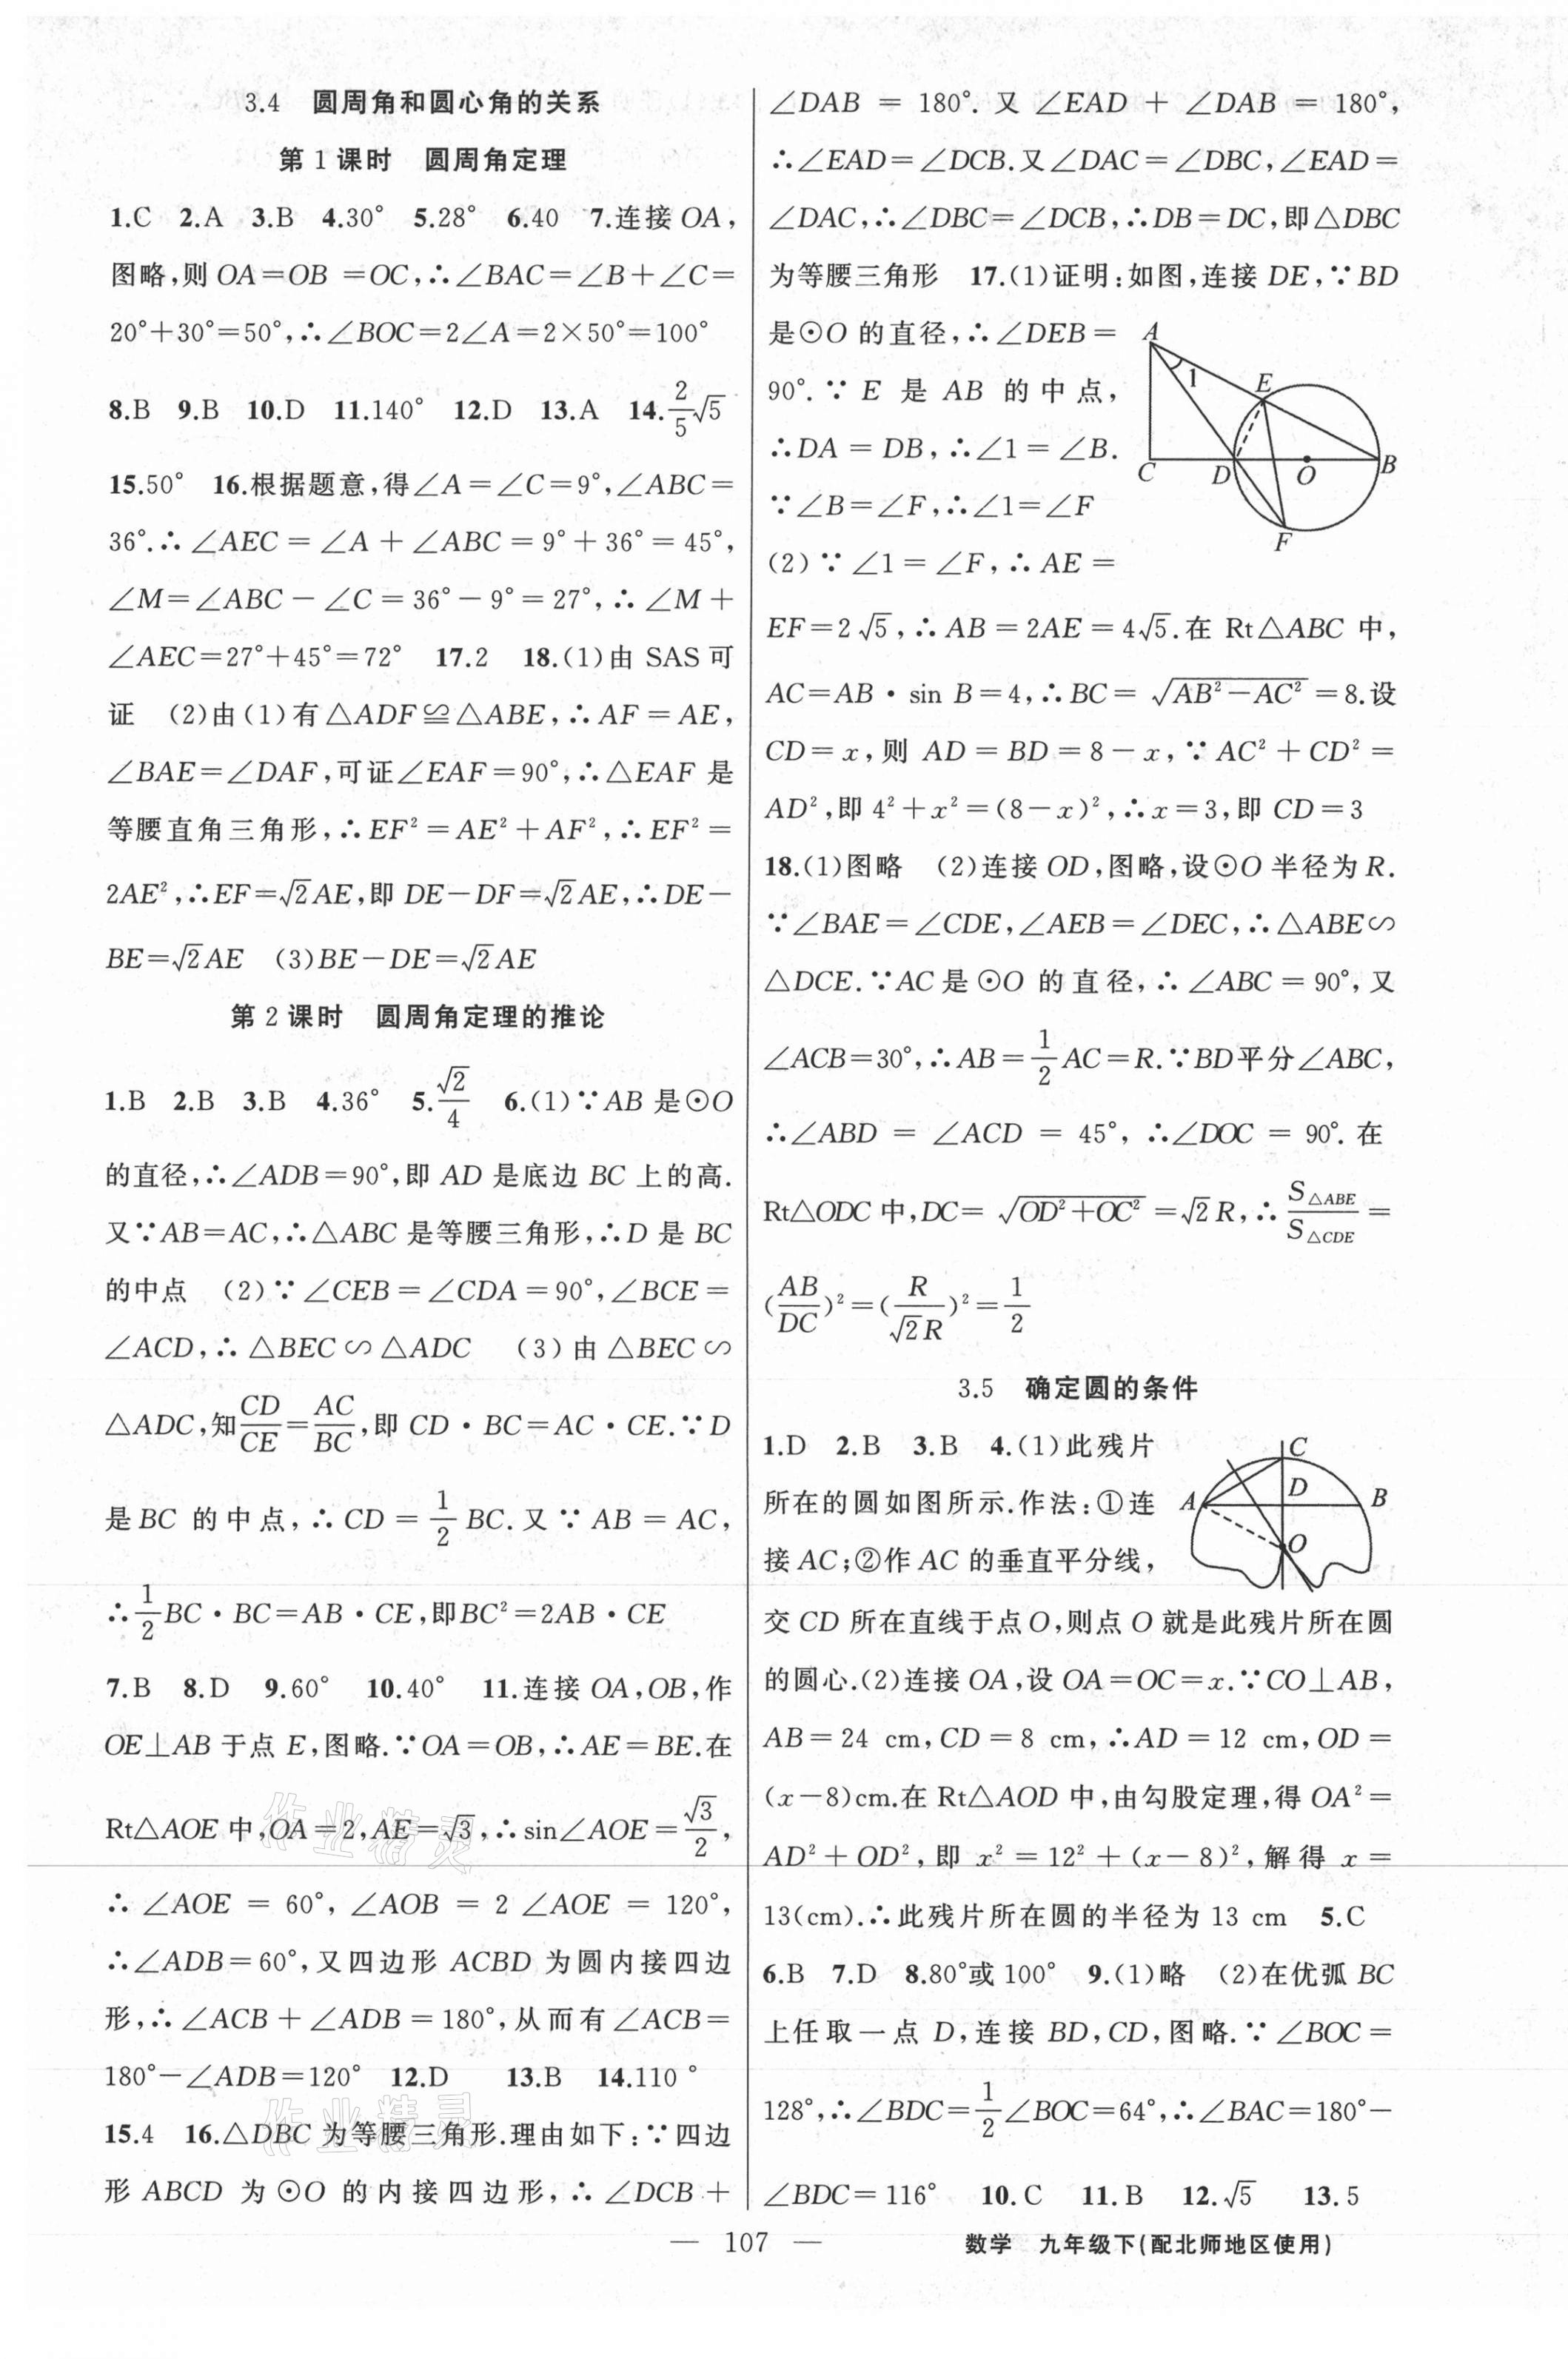 3.4 圆周角和圆心角的关系
第1课时 圆周角定理
1.C 2.A 3.B 4.30° 5.28° 6.40 7.连接OA,
图略,则OA=OB =OC,∴∠BAC=∠B+∠C=
20°+30°=50°,∴∠BOC=2∠A=2×50°=100°
8.B 9.B 10.D 11.140° 12.D 13.A 14.2/5√5
15.50° 16.根据题意,得∠A=∠C=9°,∠ABC=
36°.∴∠AEC=∠A+∠ABC=9°+36°=45°,
∠M=∠ABC-∠C=36°-9°=27°,∴∠M+
∠AEC=27°+45°=72° 17.2 18.(1)由SAS可
证 (2)由(1)有△ADF≌△ABE,∴AF=AE,
∠BAE=∠DAF,可证∠EAF=90°,∴△EAF是
等腰直角三角形,∴EF²=AE²+AF²,∴EF²=
2AE²,∴EF=√2AE,即DE-DF=√2AE,∴DE-
BE=√2AE (3)BE-DE=√2AE
第2课时 圆周角定理的推论
1.B 2.B 3.B 4.36° 5.√2/4 6.(1)∵AB是⊙O
的直径,∴∠ADB=90°,即AD是底边BC上的高.
又∵AB=AC,∴△ABC是等腰三角形,∴D是BC
的中点 (2)∵∠CEB=∠CDA=90°,∠BCE=
∠ACD,∴△BEC∽△ADC (3)由△BEC∽
△ADC,知CD/CE=AC/BC,即CD·BC=AC·CE.∵D
是BC的中点,∴CD=1/2BC.又∵AB=AC,
∴1/2BC·BC=AB·CE,即BC²=2AB·CE
7.B 8.D 9.60° 10.40° 11.连接OA,OB,作
OE⊥AB于点E,图略.∵OA=OB,∴AE=BE.在
Rt△AOE中,OA=2,AE=√3,∴sin∠AOE=√3/2,
∴∠AOE=60°,∠AOB=2∠AOE=120°,
∴∠ADB=60°,又四边形ACBD为圆内接四边
形,∴∠ACB+∠ADB=180°,从而有∠ACB=
180°-∠ADB=120° 12.D 13.B 14.110°
15.4 16.△DBC为等腰三角形.理由如下:∵四边
形ABCD为⊙O的内接四边形,∴∠DCB+
∠DAB=180°.又∠EAD+∠DAB=180°,
∴∠EAD=∠DCB.又∠DAC=∠DBC,∠EAD=
∠DAC,∴∠DBC=∠DCB,∴DB=DC,即△DBC
为等腰三角形 17.(1)证明:如图,连接DE,∵BD
是⊙O的直径,∴∠DEB=
90°.∵E是AB的中点,
∴DA=DB,∴∠1=∠B.
∵∠B=∠F,∴∠1=∠F
(2)∵∠1=∠F,∴AE=
A
1
E
C
D
O
B
F
EF=2√5,∴AB=2AE=4√5.在Rt△ABC中,
AC=AB·sin B=4,∴BC=√(AB²-AC²)=8.设
CD=x,则AD=BD=8-x,∵AC²+CD²=
AD²,即4²+x²=(8-x)²,∴x=3,即CD=3
18.(1)图略 (2)连接OD,图略,设⊙O半径为R.
∵∠BAE=∠CDE,∠AEB=∠DEC,∴△ABE∽
△DCE.∵AC是⊙O的直径,∴∠ABC=90°,又
∠ACB=30°,∴AB=1/2AC=R.∵BD平分∠ABC,
∴∠ABD=∠ACD=45°,∴∠DOC=90°.在
Rt△ODC中,DC=√(OD²+OC²)=√2R,∴S△ABE/S△CDE=
(AB/DC)²=(R/√2R)²=1/2
3.5 确定圆的条件
1.D 2.B 3.B 4.(1)此残片
所在的圆如图所示.作法:①连
接AC;②作AC的垂直平分线,
C
A
D
B
O
交CD所在直线于点O,则点O就是此残片所在圆
的圆心.(2)连接OA,设OA=OC=x.∵CO⊥AB,
AB=24 cm,CD=8 cm,∴AD=12 cm,OD=
(x-8)cm.在Rt△AOD中,由勾股定理,得OA²=
AD²+OD²,即x²=12²+(x-8)²,解得x=
13(cm).∴此残片所在圆的半径为13 cm 5.C
6.B 7.D 8.80°或100° 9.(1)略 (2)在优弧BC
上任取一点D,连接BD,CD,图略.∵∠BOC=
128°,∴∠BDC=1/2∠BOC=64°,∴∠BAC=180°-
∠BDC=116° 10.C 11.B 12.√5 13.5
作业精灵
作业精灵
— 107 —
数学 九年级下(配北师地区使用)